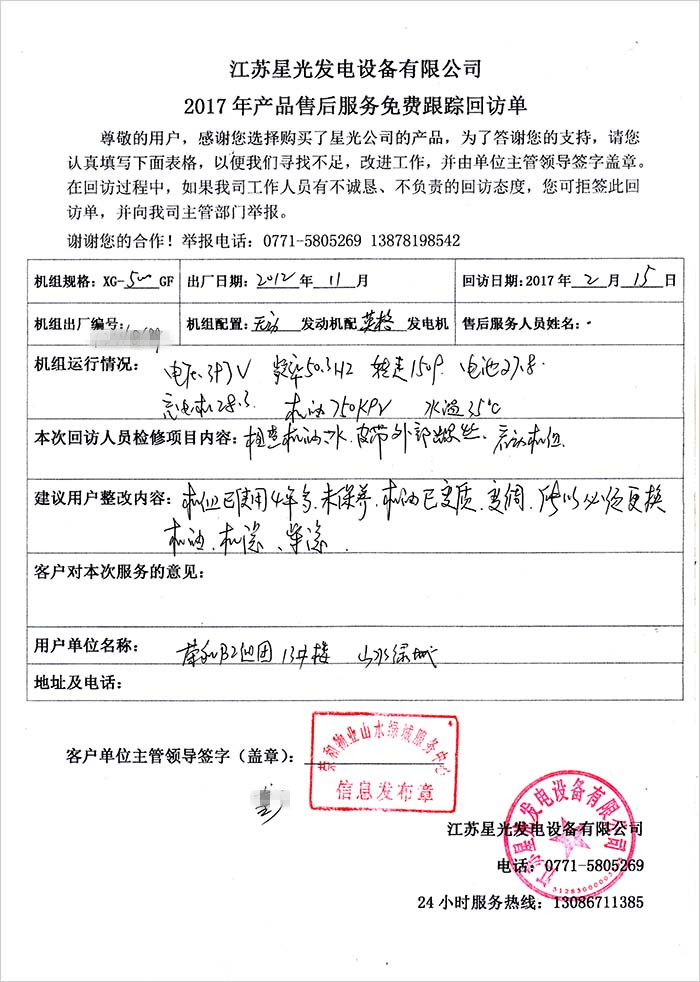 江苏星光发电设备有限公司
2017年产品售后服务免费跟踪回访单
尊敬的用户，感谢您选择购买了星光公司的产品，为了答谢您的支持，请您
认真填写下面表格，以便我们寻找不足，改进工作，并由单位主管领导签字盖章。
在回访过程中，如果我司工作人员有不诚恳、不负责的回访态度，您可拒签此回
访单，并向我司主管部门举报。
谢谢您的合作！举报电话：0771-5805269 13878198542
机组规格：XG-500GF 出厂日期：2012年11月 回访日期：2017年2月15日
机组出厂编号： 机组配置：发动机配英格发电机 售后服务人员姓名：
机组运行情况： 电压.393V 频率50.3HZ 转速1509. 电池27.8.
充电机28.3. 机油750KPV 水温35℃
本次回访人员检修项目内容：机油、水、皮带外部 启动机组.
建议用户整改内容：机组已使用4年多.未保养.机油已变质.变稠.所以必须更换
机油.机滤、柴滤.
客户对本次服务的意见：
用户单位名称： 荣和B2组团 13#楼 山水绿城
地址及电话：
客户单位主管领导签字（盖章）：
荣和物业山水绿城服务中心
信息发布章
江苏星光发电设备有限公司
江苏星光发电设备有限公司
电话：0771-5805269
24小时服务热线：13086711385